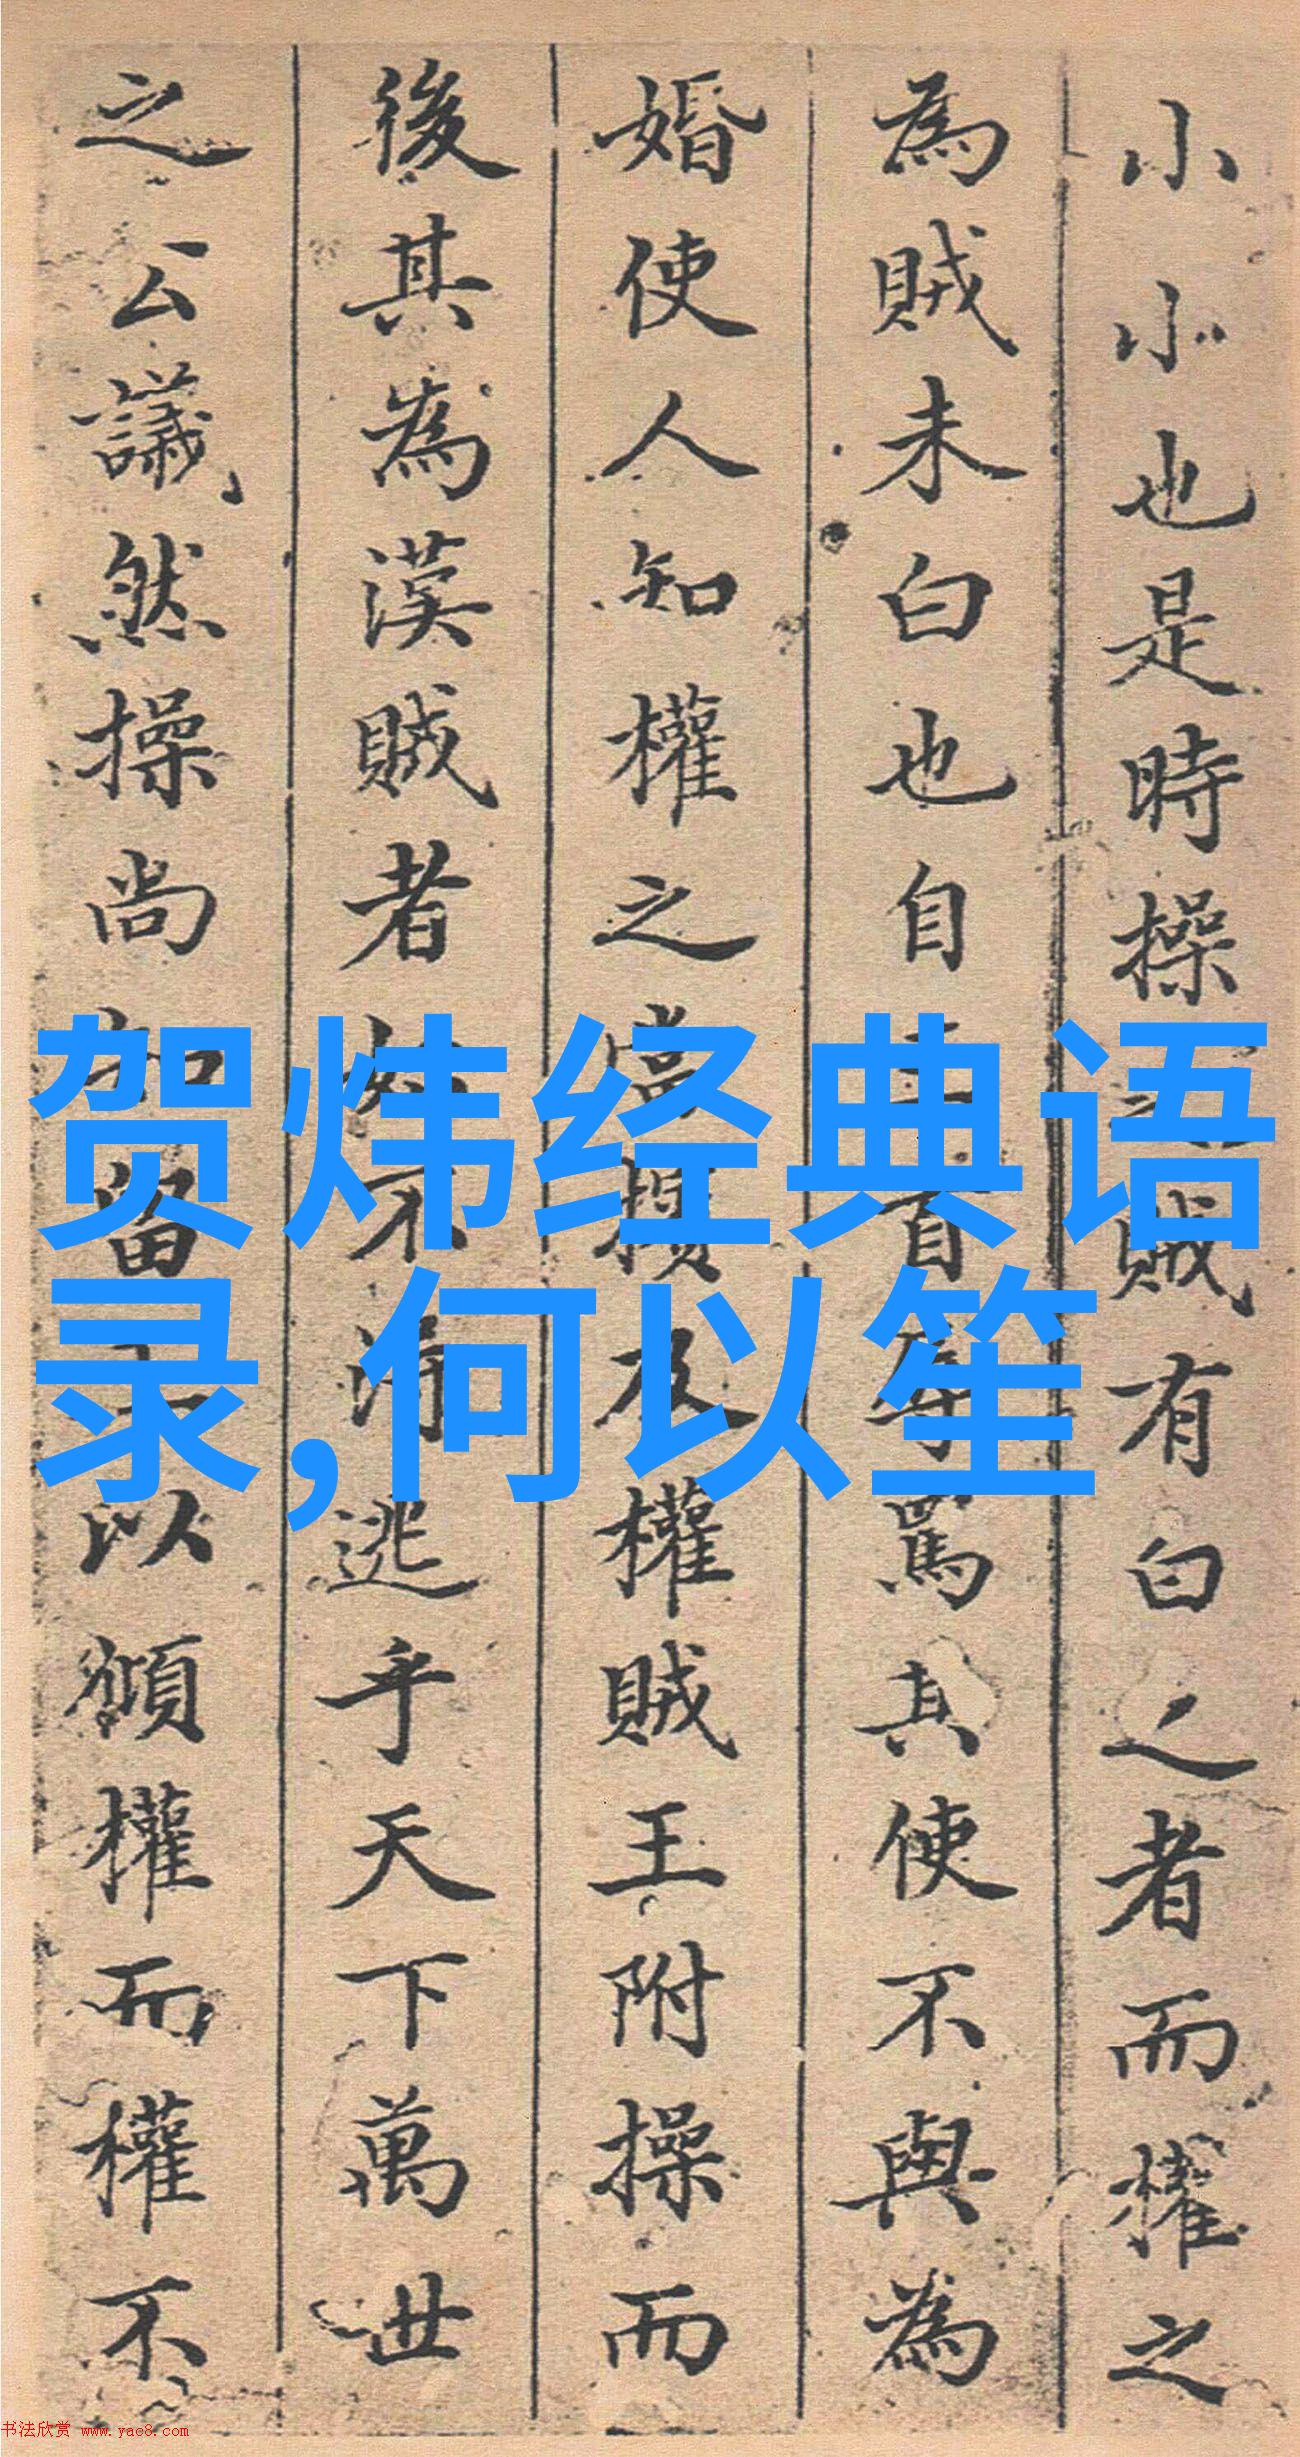 小小也是時操賊有白之者而權之
為賊未白也自罵其使不與為
婚使人知權之當及權賊王附操而
後其為漢賊者不得逃乎天下萬世
之公議然操尚以權而權不
贺炜经典语
录,何以笙
书法欣赏 www.yac8.com